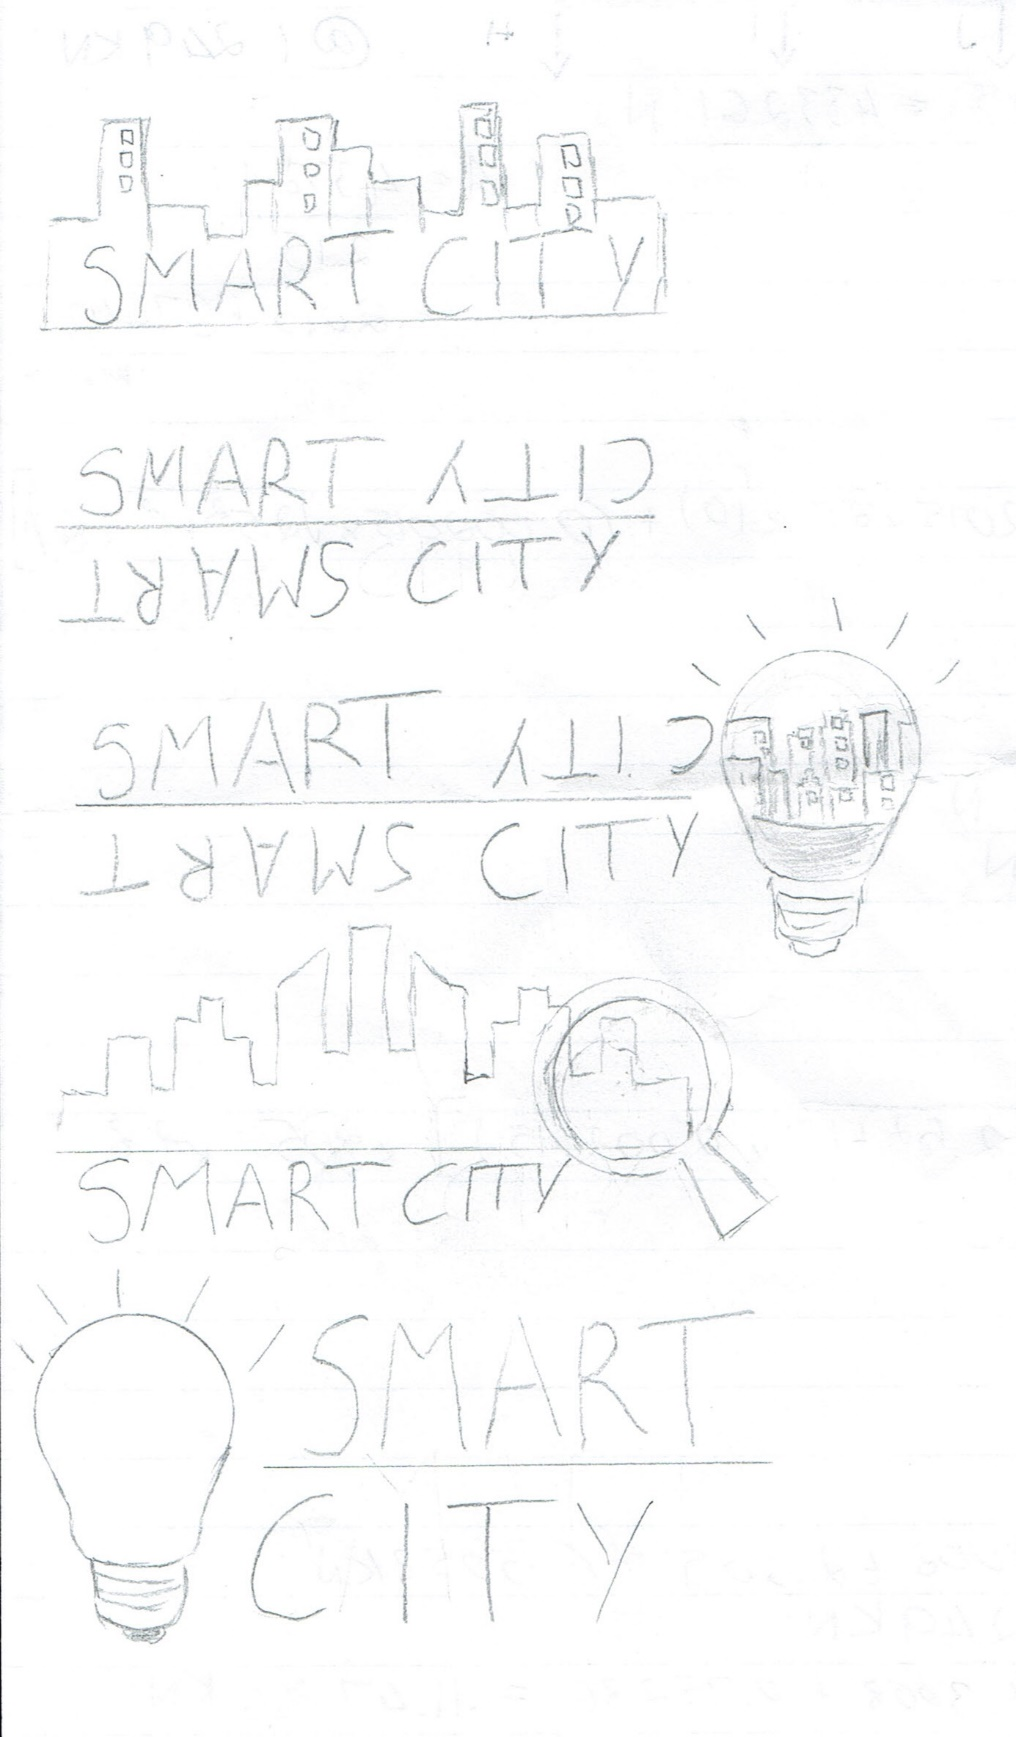 SMART CITY
SMART CITY
SMART CITY
SMART CITY
SMART CITY
SMART CITY
SMART
CITY